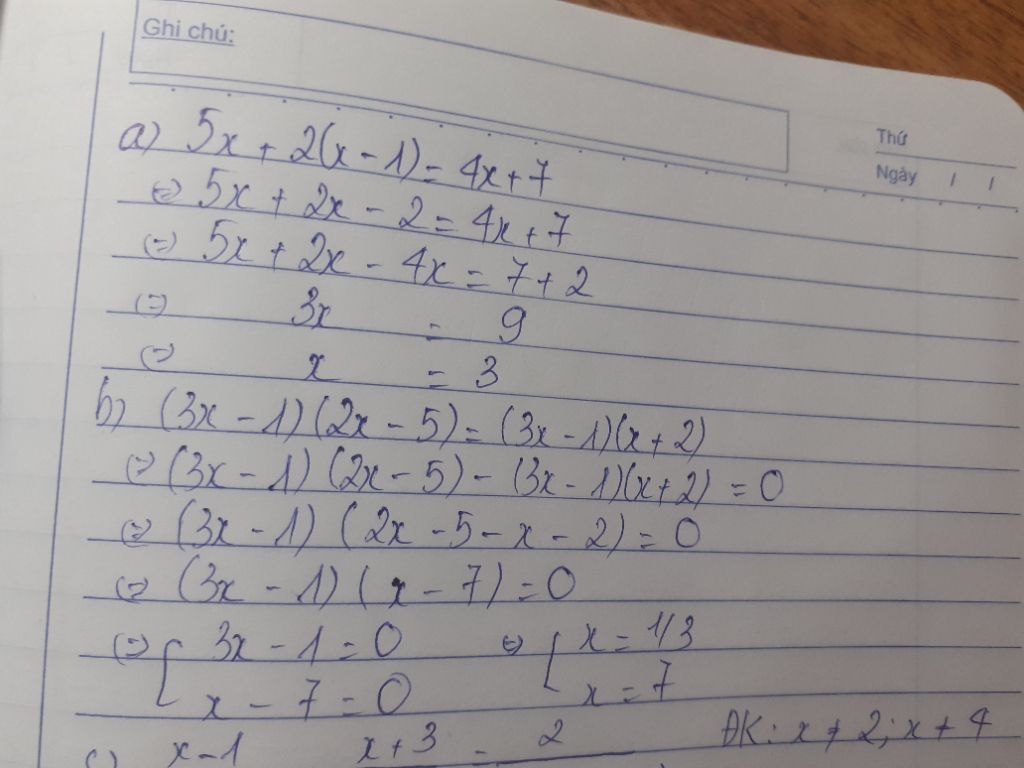 Ghi chú:
Thứ
Ngày / /
a) 5x + 2(x - 1) = 4x + 7
(=) 5x + 2x - 2 = 4x + 7
(=) 5x + 2x - 4x = 7 + 2
(=) 3x = 9
(=) x = 3
b) (3x - 1)(2x - 5) = (3x - 1)(x + 2)
(=) (3x - 1)(2x - 5) - (3x - 1)(x + 2) = 0
(=) (3x - 1)(2x - 5 - x - 2) = 0
(=) (3x - 1)(x - 7) = 0
(=) [ 3x - 1 = 0 (=) [ x = 1/3
x - 7 = 0 x = 7
c) x - 1 x + 3 = 2 ĐK: x ≠ 2; x ≠ 4